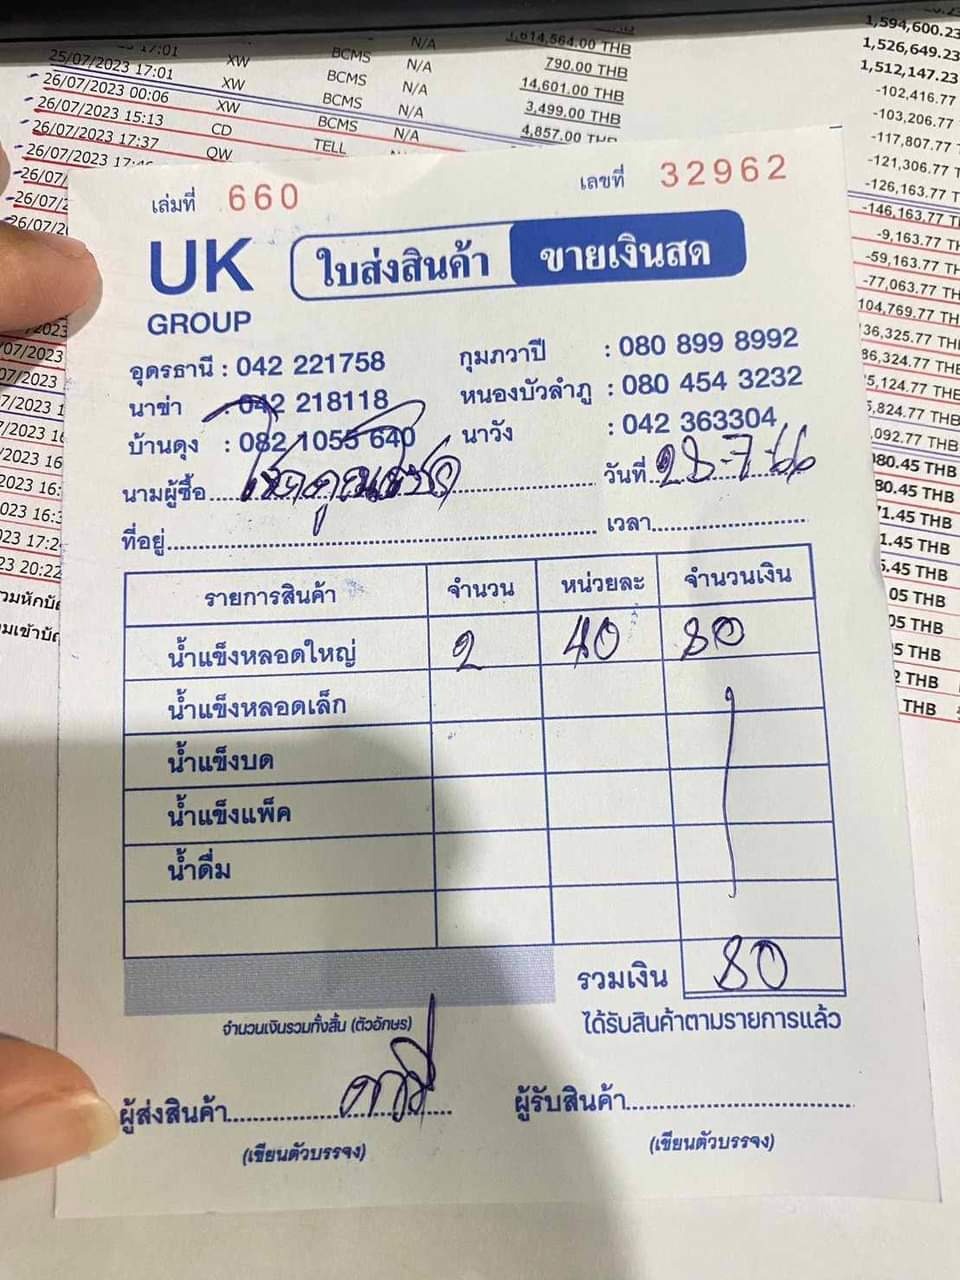 17:01 XW BCMS N/A 1,614,564.00 THB 1,594,600.23
25/07/2023 17:01 XW BCMS N/A 790.00 THB 1,526,649.23
26/07/2023 00:06 XW BCMS N/A 14,601.00 THB 1,512,147.23
26/07/2023 15:13 CD BCMS N/A 3,499.00 THB -102,416.77
26/07/2023 17:37 OW TELL 4,857.00 THB -103,206.77
26/07/2023 -117,807.77
-121,306.77
-126,163.77 TH
-146,163.77 TH
-9,163.77 TH
-59,163.77 TH
-77,063.77 TH
เล่มที่ 660 เลขที่ 32962
UK GROUP
ใบส่งสินค้า ขายเงินสด
อุดรธานี : 042 221758 กุมภวาปี : 080 899 8992
นาข่า : 042 218118 หนองบัวลำภู : 080 454 3232
บ้านดุง : 082 1055 640 นาวัง : 042 363304
นามผู้ซื้อ วันที่ 28-7-66
ที่อยู่ เวลา
รายการสินค้า จำนวน หน่วยละ จำนวนเงิน
น้ำแข็งหลอดใหญ่ 2 40 80
น้ำแข็งหลอดเล็ก
น้ำแข็งบด
น้ำแข็งแพ็ค
น้ำดื่ม
รวมเงิน 80
จำนวนเงินรวมทั้งสิ้น (ตัวอักษร) ได้รับสินค้าตามรายการแล้ว
ผู้ส่งสินค้า ผู้รับสินค้า
(เขียนตัวบรรจง) (เขียนตัวบรรจง)